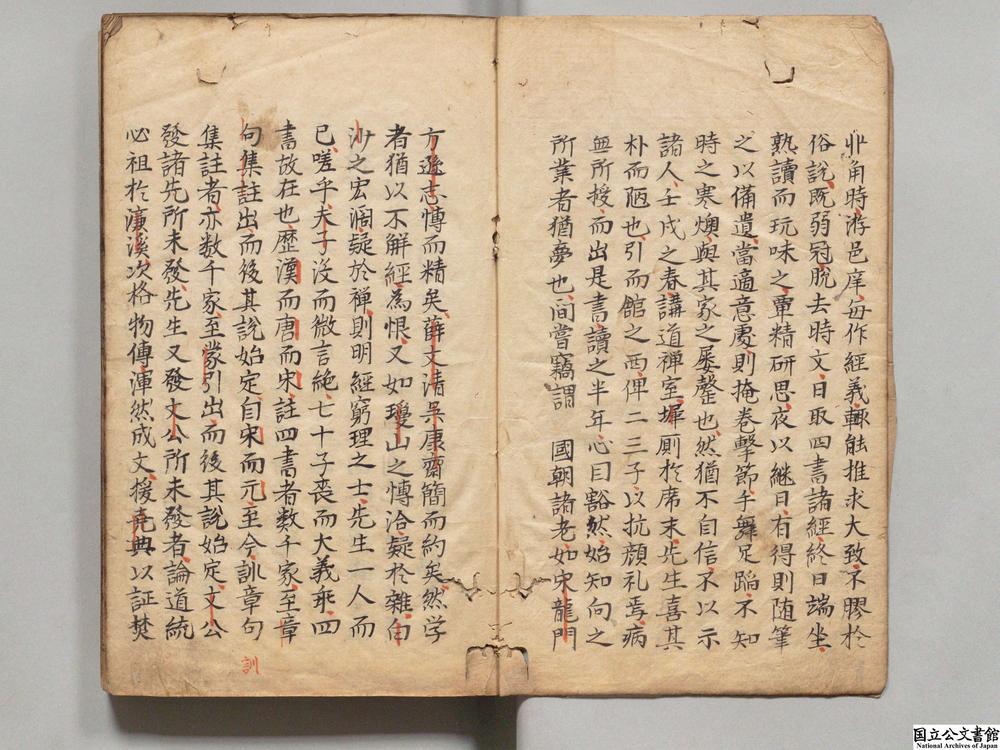 丱角時游邑庠每作經義輒能推求大致不膠於
俗說既弱冠脫去時文日取四書諸經終日端坐
熟讀而玩味之覃精研思夜以継日有得則随筆
之以備遺當適意處則掩巻擊節手舞足蹈不知
時之寒燠與其家之屢罄也然猶不自信不以示
諸人壬戌之春講道禅室墀厠於席末先生喜其
朴而陋也引而館之西俾二三子以抗顔礼焉病
無所授而出是書讀之半年心目豁然始知向之
所業者猶夢也間嘗竊謂 國朝諸老如宋龍門
方遜志博而精矣薛文清吴康齋簡而約矣然学
者猶以不解經為恨又如瓊山之愽洽疑於雜白
沙之宏濶疑於禅則明經窮理之士先生一人而
已嗟乎夫子没而微言絶七十子喪而大義乖四
書故在也歴漢而唐而宋註四書者数千家至章
句集註出而後其說始定自宋而元至今訓章句
集註者亦数千家至蒙引出而後其說始定文公
發諸先所未發先生又發文公所未發者論道統
必祖於濂溪次格物傳渾然成文援尭典以証焚
訓
国立公文書館
National Archives of Japan